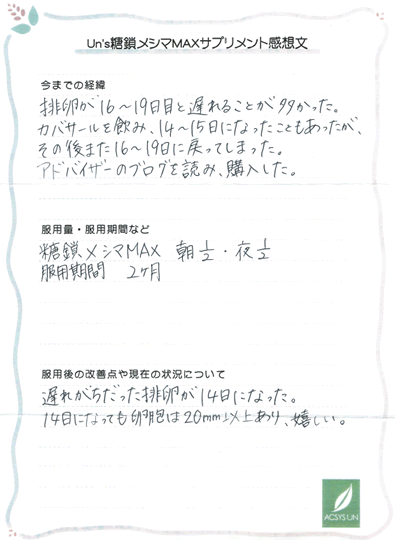 Un's糖鎖メシマMAXサプリメント感想文
今までの経緯
排卵が16〜19日目と遅れることが多かった。
カバサールを飲み、14〜15日になったこともあったが、
その後また16〜19日に戻ってしまった。
アドバイザーのブログを読み、購入した。
服用量・服用期間など
糖鎖メシマMAX 朝1/2・夜1/2
服用期間 2ヶ月
服用後の改善点や現在の状況について
遅れがちだった排卵が14日になった。
14日になっても卵胞は20mm以上あり、嬉しい。
ACSYS UN